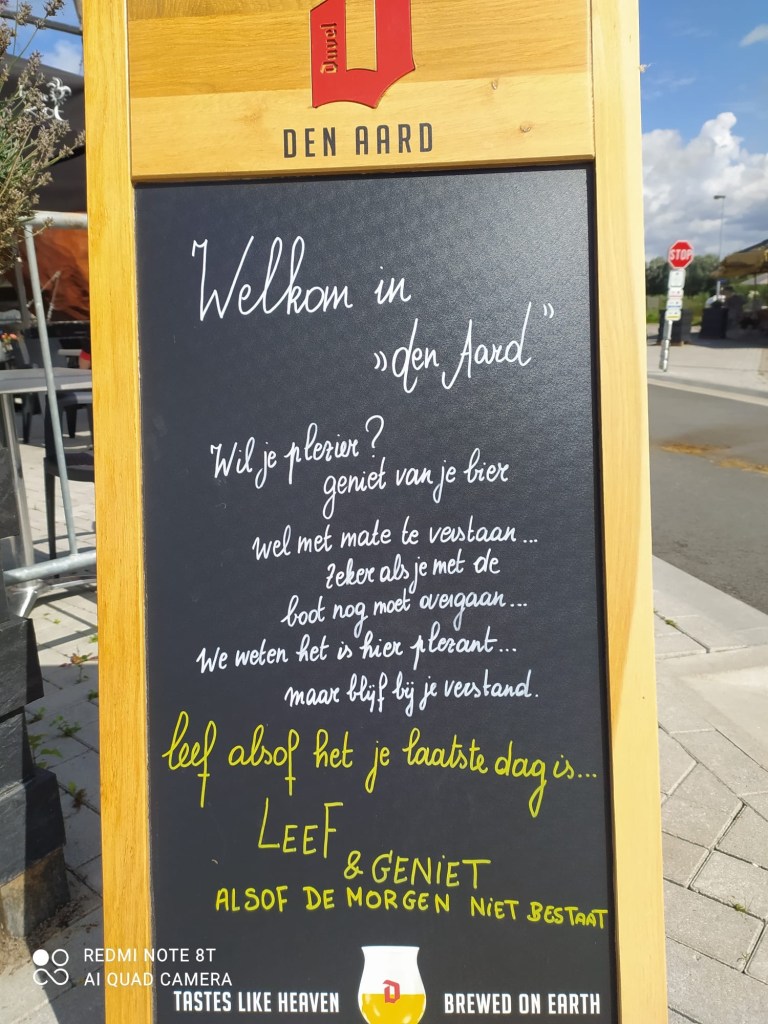 Duvel
DEN AARD
STOP
Welkom in
„den Aard"
Wil je plezier?
geniet van je bier
wel met mate te verstaan...
Zeker als je met de
boot nog moet overgaan...
We weten het is hier plezant...
maar blijf bij je verstand.
leef alsof het je laatste dag is...
LEEF
& GENIET
ALSOF DE MORGEN NIET BESTAAT
REDMI NOTE 8T
AI QUAD CAMERA
TASTES LIKE HEAVEN BREWED ON EARTH